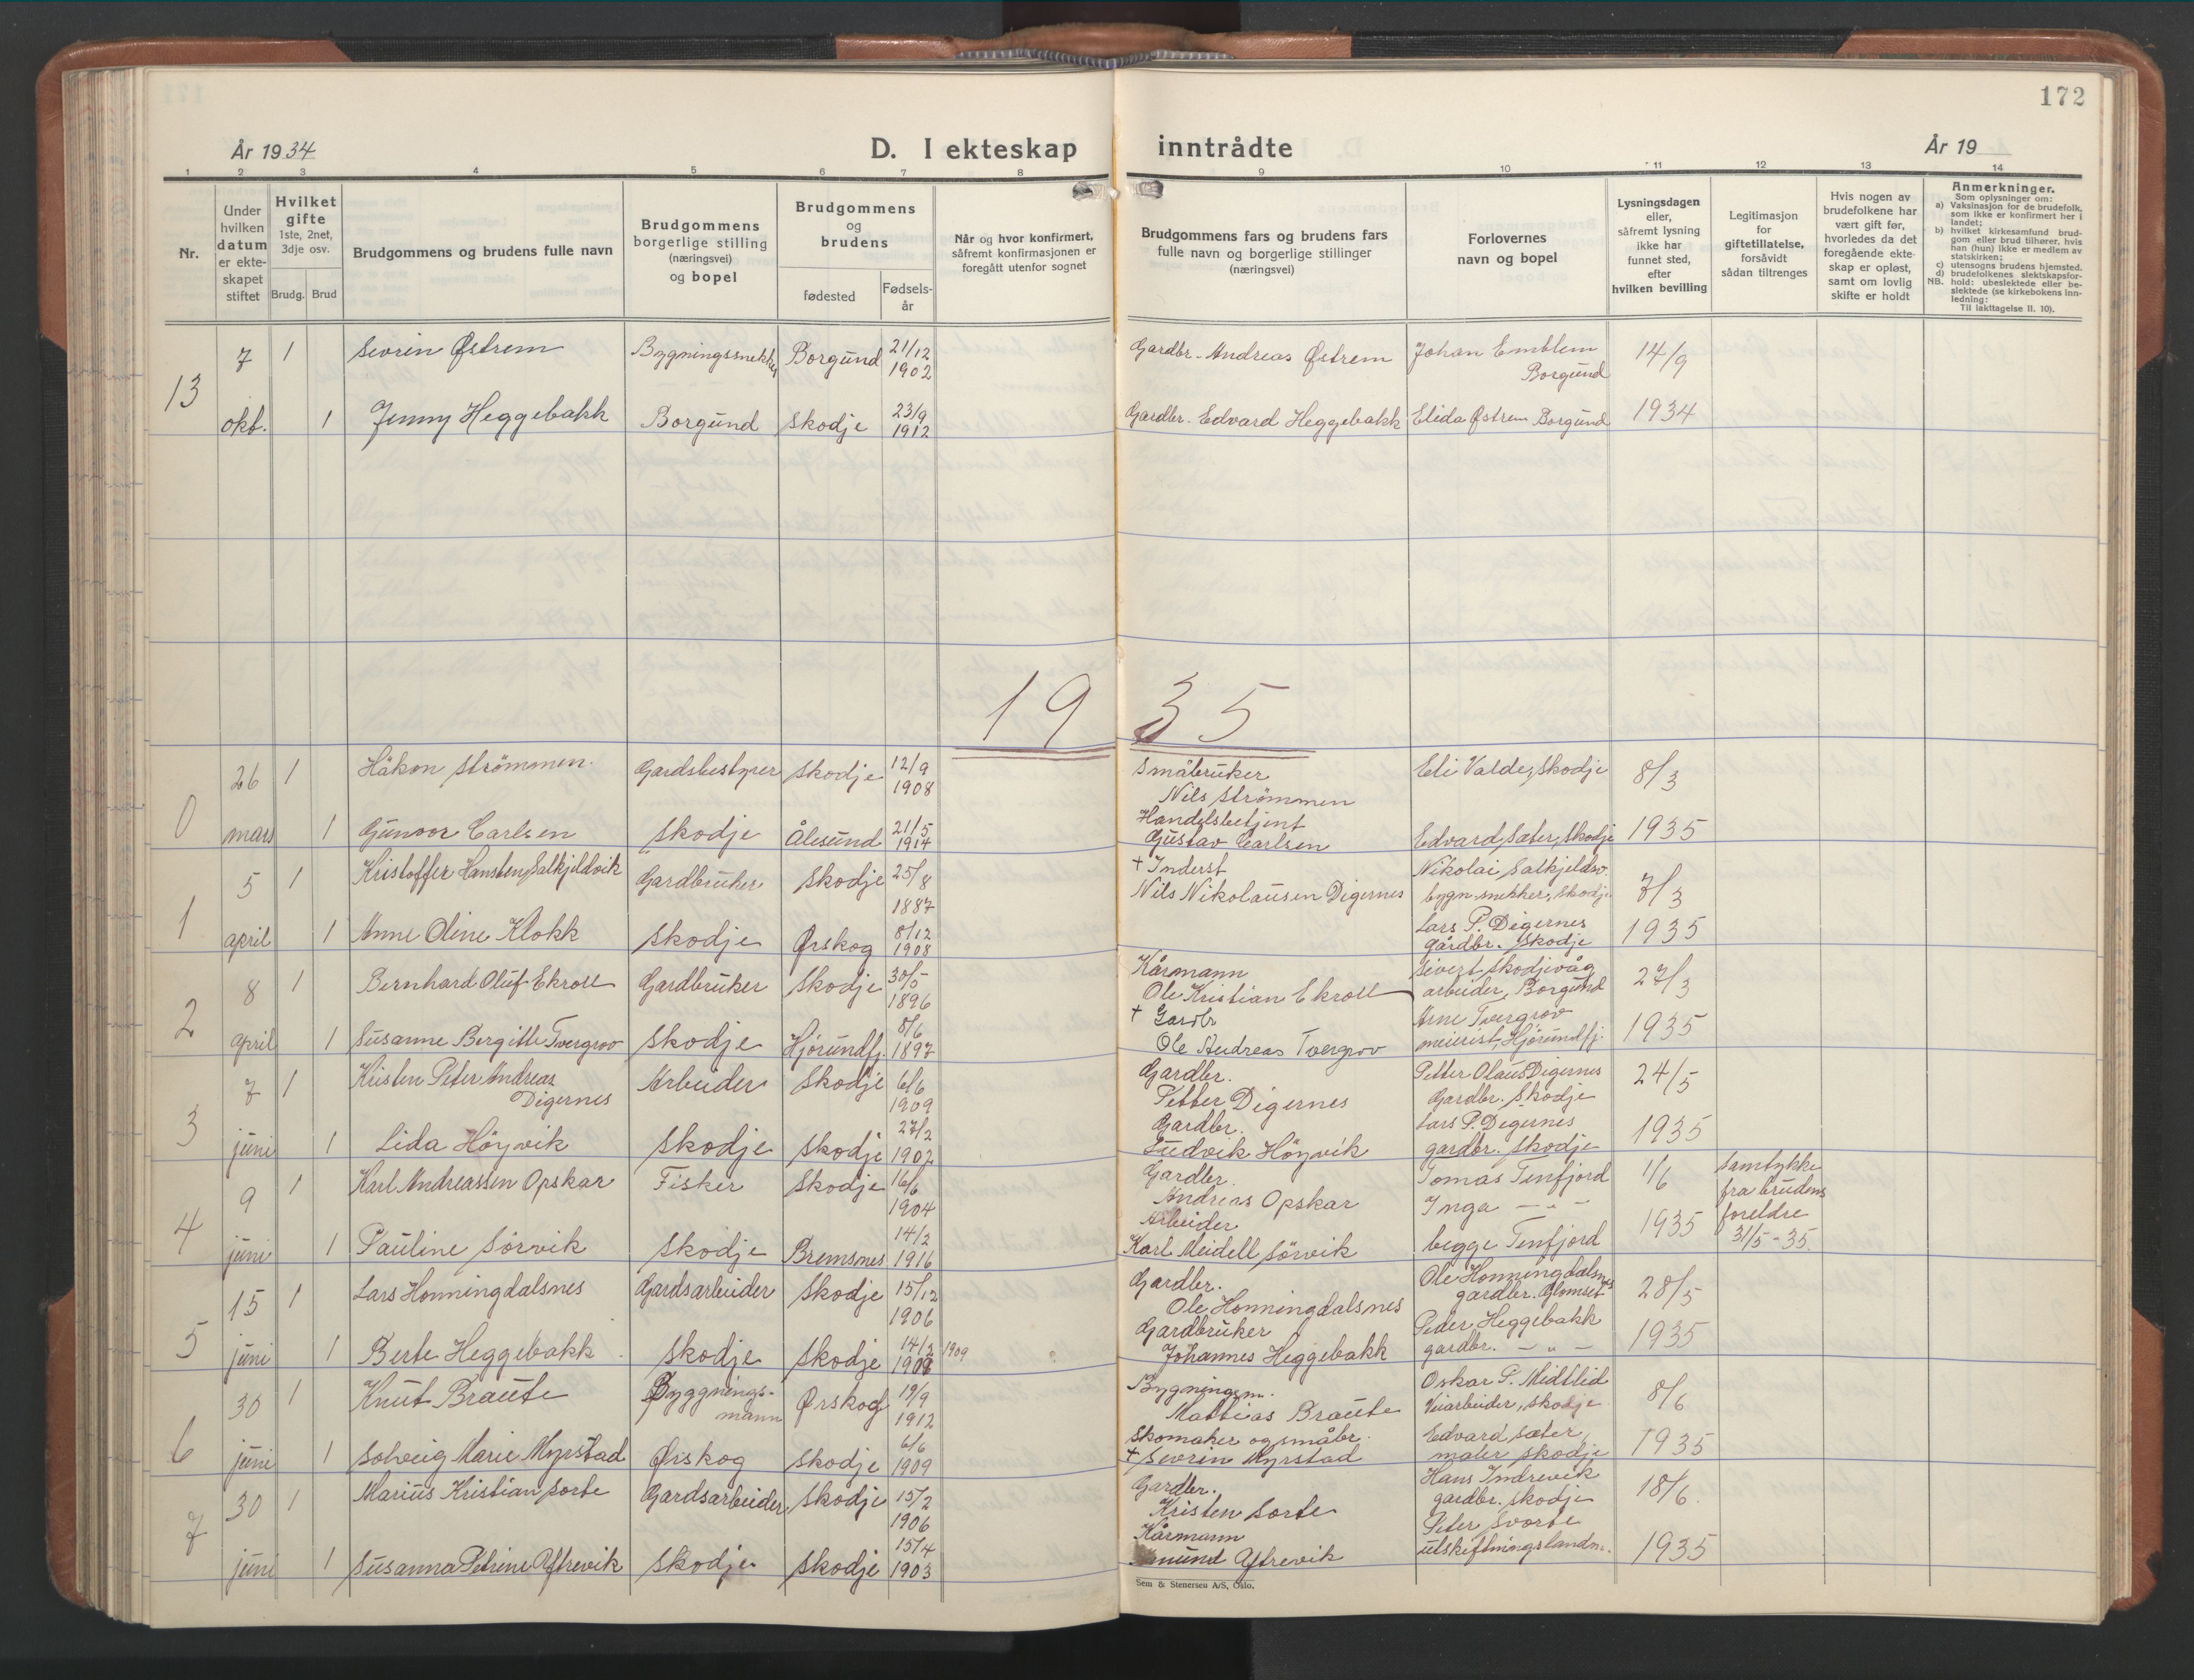 172
År 1934
D. I ekteskap inntrådte
År 19
1 2 3 4 5 6 7 8 9 10 11 12 13 14
Nr.
Under hvilken datum er ekteskapet stiftet
Hvilket gifte 1ste, 2net, 3dje osv.
Brudg. Brud
Brudgommens og brudens fulle navn
Brudgommens borgerlige stilling (næringsvei) og bopel
Brudgommens og brudens
fødested
Fødselsår
Når og hvor konfirmert, såfremt konfirmasjonen er foregått utenfor sognet
Brudgommens fars og brudens fars fulle navn og borgerlige stillinger (næringsvei)
Forlovernes navn og bopel
Lysningsdagen eller, såfremt lysning ikke har funnet sted, efter hvilken bevilling
Legitimasjon for giftetillatelse, forsåvidt sådan tiltrenges
Hvis nogen av brudefolkene har vært gift før, hvorledes da det foregående ekteskap er opløst, samt om lovlig skifte er holdt
Anmerkninger.
Som oplysninger om:
a) Vaksinasjon for de brudefolk, som ikke er konfirmert her i landet;
b) hvilket kirkesamfund brudgom eller brud tilhører, hvis han (hun) ikke er medlem av statskirken;
c) utensogns brudens hjemsted.
d) brudefolkenes slektskapsforhold: ubeslektede eller beslektede (se kirkebokens innledning:
NB.
Til iakttagelse II. 10).
13 7 1 Sevrin Østrem Bygningssnekker Borgund 21/12 1902 Gardbr. Andreas Østrem Johan Emblem Borgund 14/9
okt. 1 Jenny Heggebakk Borgund Skodje 23/9 1912 Gardbr. Edvard Heggebakk Elida Østrem Borgund 1934
1935
0 26 1 Håkon Strömmen. Gardsbestyrer Skodje 12/9 1908 Småbruker Nils Strömmen Eli Valde, Skodje 8/3
mars 1 Gunvor Carlsen Skodje Ålesund 21/5 1914 Handelsbetjent Gustav Carlsen Edvard Sæter, Skodje 1935
1 5 1 Kristoffer Hansten Salkjeldvik Gardbruker Skodje 25/8 1887 + Inderst Nils Nikolausen Digernes Nikolai Salkjeldsv. bygn.snekker, Skodje 7/3
april 1 Anne Oline Klokk Skodje Ørskog 8/12 1908 Lars P. Digernes gårdbr. Skodje 1935
2 8 1 Bernhard Oluf Ekroll Gardbruker Skodje 30/5 1896 Kårmann Ole Kristian Ekroll Sivert Skodjevåg arbeider, Borgund 27/3
april 1 Susanne Bergitte Tvergrov Skodje Hjörundfj. 8/6 1897 + Gardbr Ole Andreas Tvergrov Arne Tvergrov meierist, Hjörundfj. 1935
3 7 1 Kristen Peter Andreas Digernes Arbeider Skodje 6/6 1909 Gardbr. Petter Digernes Petter Olaus Digernes Gardbr. Skodje 24/5
juni 1 Lida Höyvik Skodje Skodje 27/2 1902 Gardbr. Ludvik Höyvik Lars P. Digernes gardbr. Skodje 1935
4 9 1 Karl Andreassen Opskar Fisker Skodje 16/6 1904 Gardbr. Andreas Opskar Tomas Tenfjord Inga — " — 1/6 Samtykke fra brudens foreldre 31/5-35.
juni 1 Pauline Sörvik Skodje Bremsnes 14/2 1916 Arbeider Karl Meidell Sörvik begge Tenfjord 1935
5 15 1 Lars Honningdalsnes Gardsarbeider Skodje 15/12 1906 Gardbr. Ole Honningdalsnes Ole Honningdalsnes gardbr. Glomset 28/5
juni 1 Berte Heggebakk Skodje Skodje 14/2 1909 1909 Gardbruker Johannes Heggebakk Peder Heggebakk gardbr. — " — 1935
6 30 1 Knut Braute Byggningsmann Ørskog 19/9 1912 Bygningsm. Mattias Braute Oskar P. Midtlid Veiarbeider, Skodje 8/6
juni 1 Solveig Marie Myrstad Ørskog Skodje 6/6 1909 Skomaker og småbr. + Sevrin Myrstad Edvard Sæter, maler Skodje 1935
7 30 1 Marius Kristian Sorte Gardsarbeider Skodje 15/2 1906 Gardbr. Kristen Sorte Hans Indrevik gardbr. Skodje 18/6.
juni 1 Susanna Petrine Yttrevik Skodje Skodje 15/4 1903 Kårmann Amund Yttrevik Peter Svorte utskiftningslandm. 1935
Sem & Stenersen A/S, Oslo.